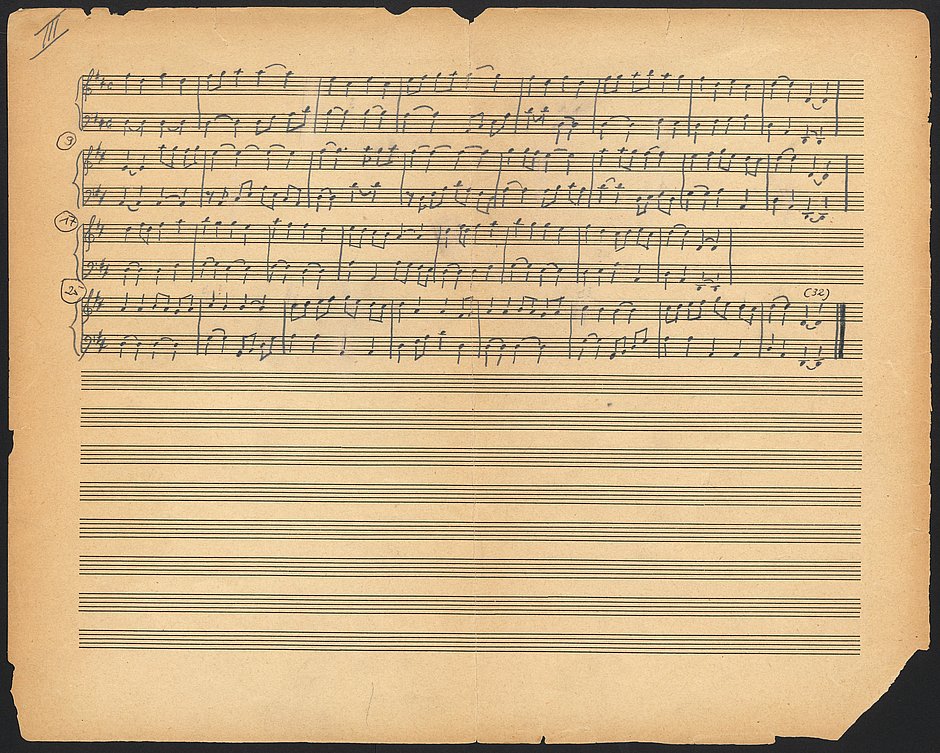 III
9
17
25
(32)